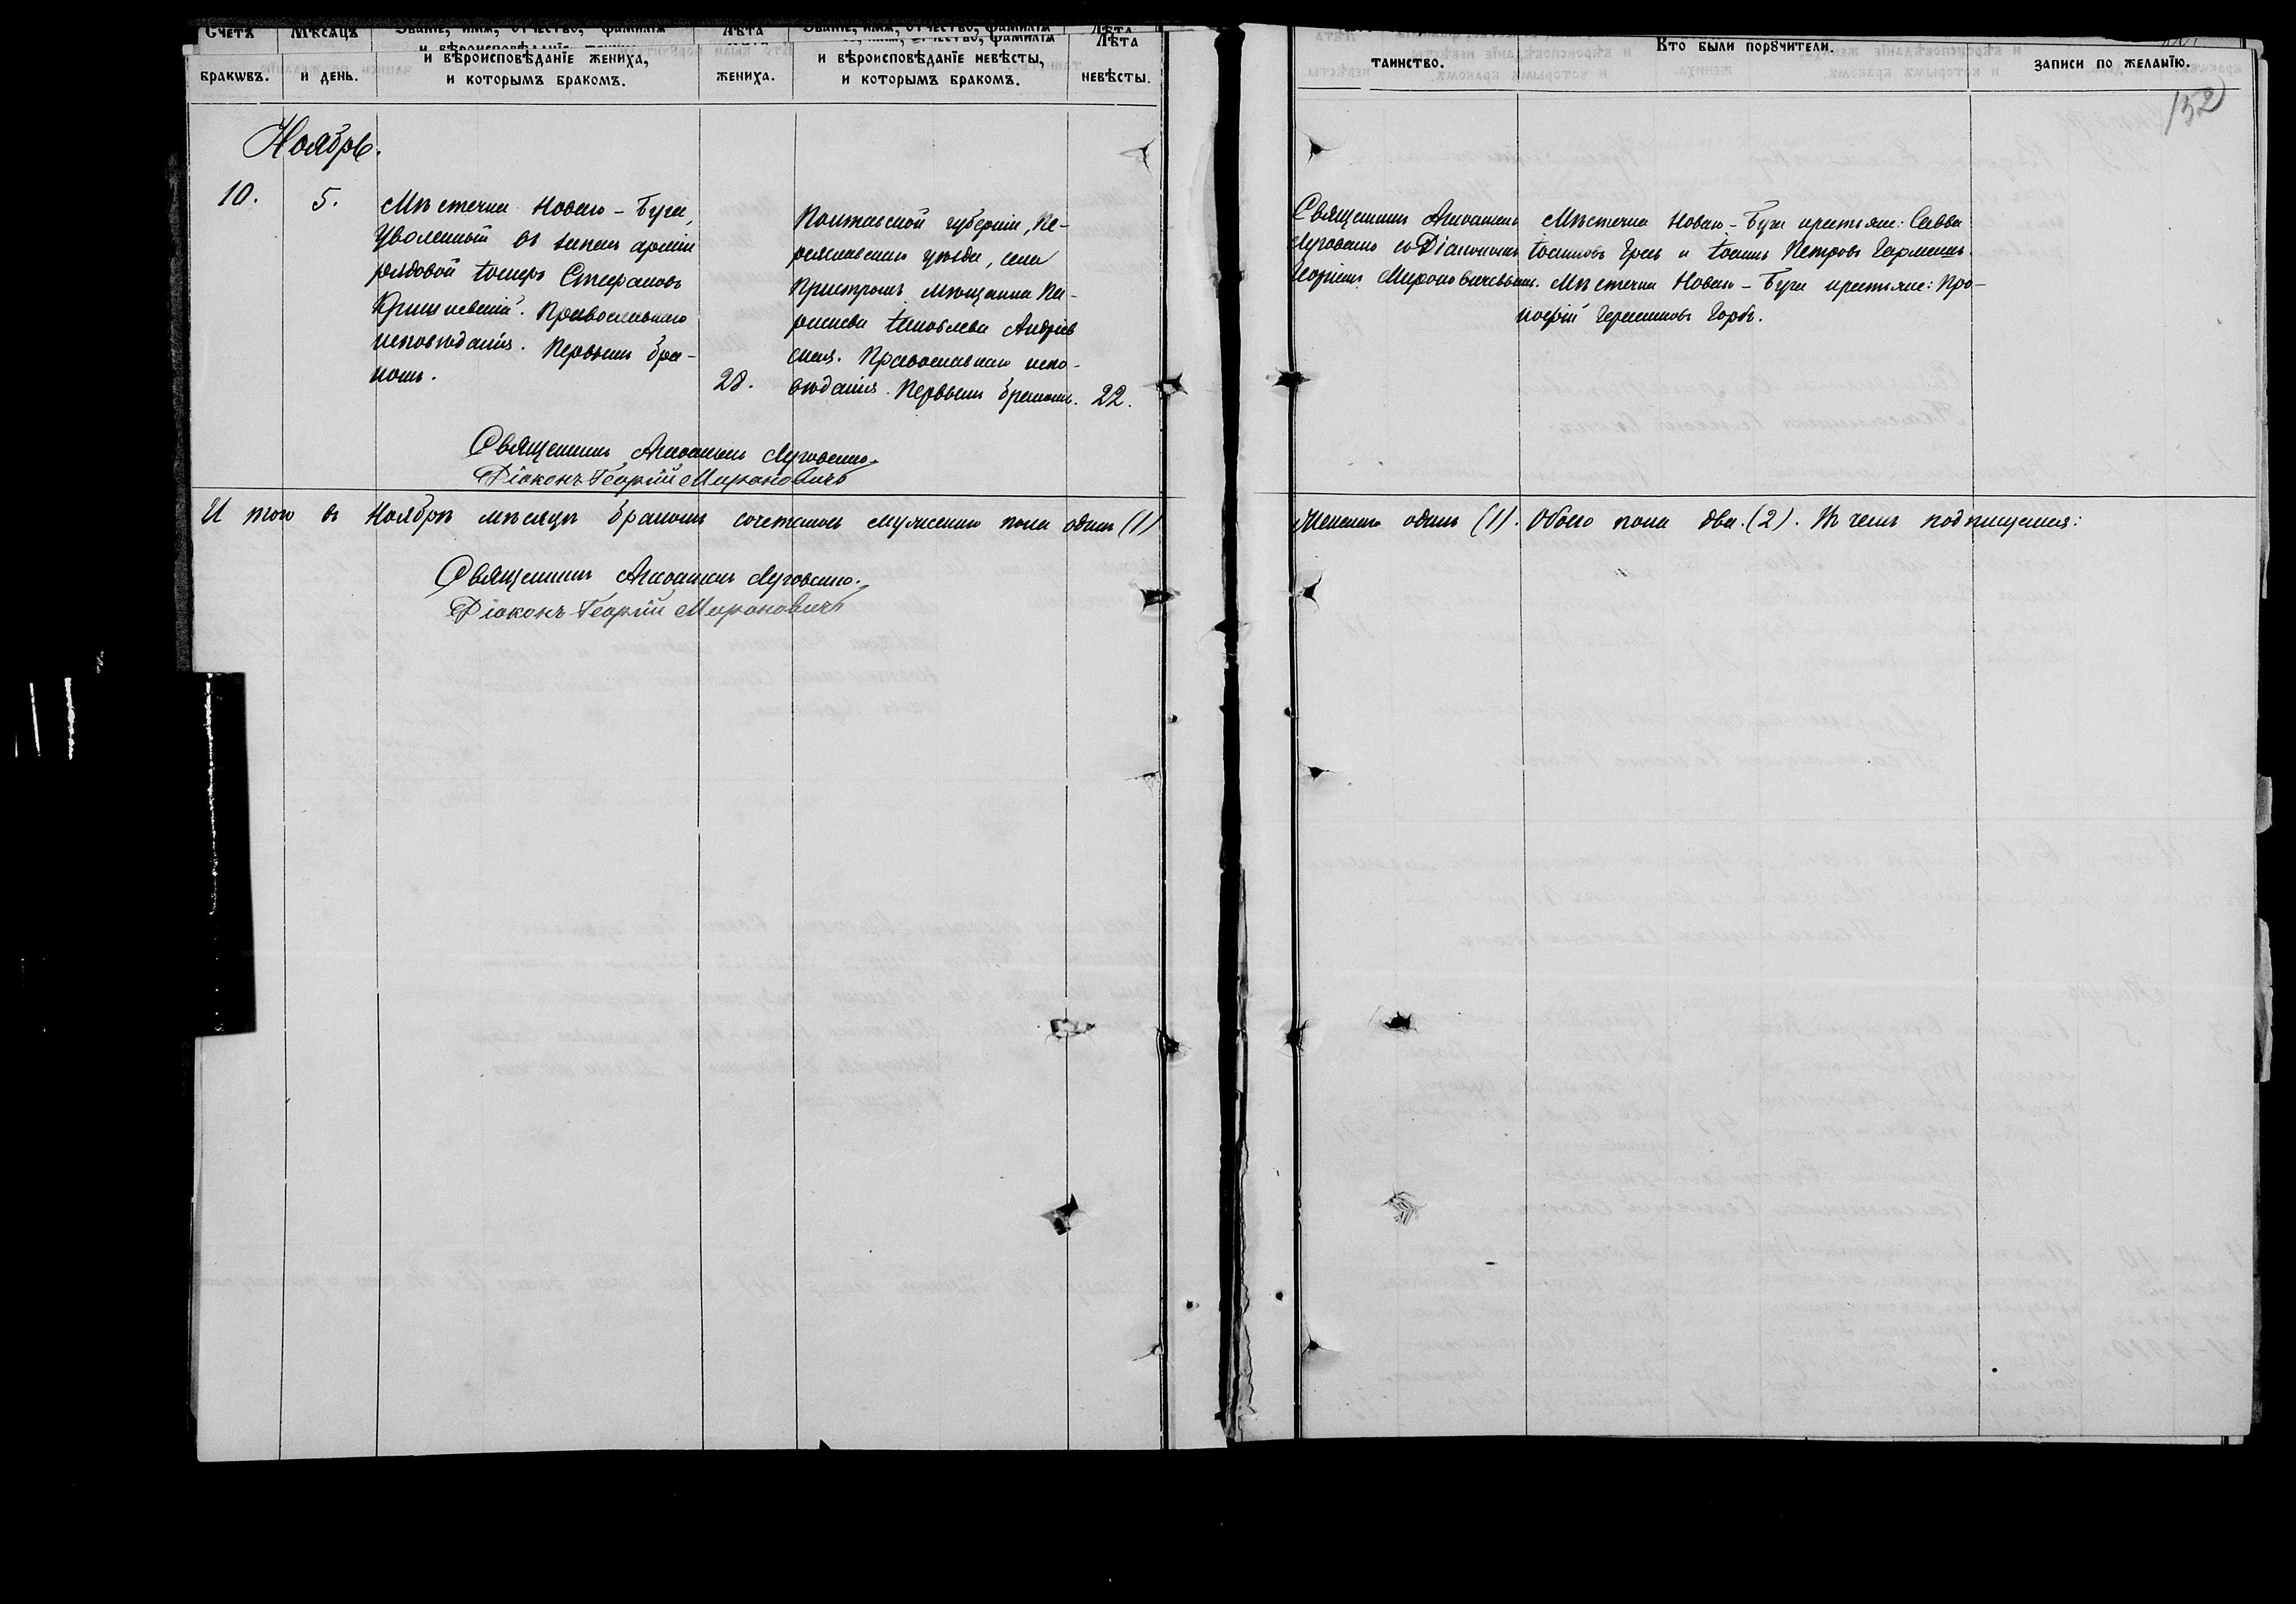 Счетъ
бракωвъ.
Мѣсяцъ
и день.
Званїе, имя, отчество, фамилїя
и вѣроисповѣданїе жениха,
и которымъ бракомъ.
Лѣта
жениха.
и вѣроисповѣданїе невѣсты,
и которымъ бракомъ.
Лѣта
невѣсты.
Ноябрь.
10.
5.
Мѣстечка Новаго-Буга,
Уволенный въ запас арміи
рядовой Іосифъ Стефановъ
Православнаго
исповѣданія. Первымъ бра-
комъ.
28.
Полтавской губерніи, Пе-
реяславскаго уѣзда, села
Пристромъ мѣщанка Па-
раскева Іаковлева Андріев
ская. Православнаго испо-
вѣданія. Первымъ бракомъ.
22.
Священникъ Луговенко.
Діаконъ Георгій Мироновичъ
И того въ Ноябрѣ мѣсяцѣ бракомъ сочеталось мужескаго пола одинъ (1)
Священникъ Луговенко.
Діаконъ Георгій Мироновичъ
таинство.
Кто были порꙋчители.
записи по желанїю.
152
Священникъ
Луговенко съ Діакономъ
Георгіемъ Мироновичемъ.
Мѣстечка Новаго-Буга крестьяне: Савва
Іоакимовъ и Іоаннъ Петровъ
Мѣстечка Новаго-Буга крестьяне: Про-
кофій Герасимовъ Горбъ.
Женскаго одинъ (1). Обоего пола два. (2). Въ чемъ подпишемся: